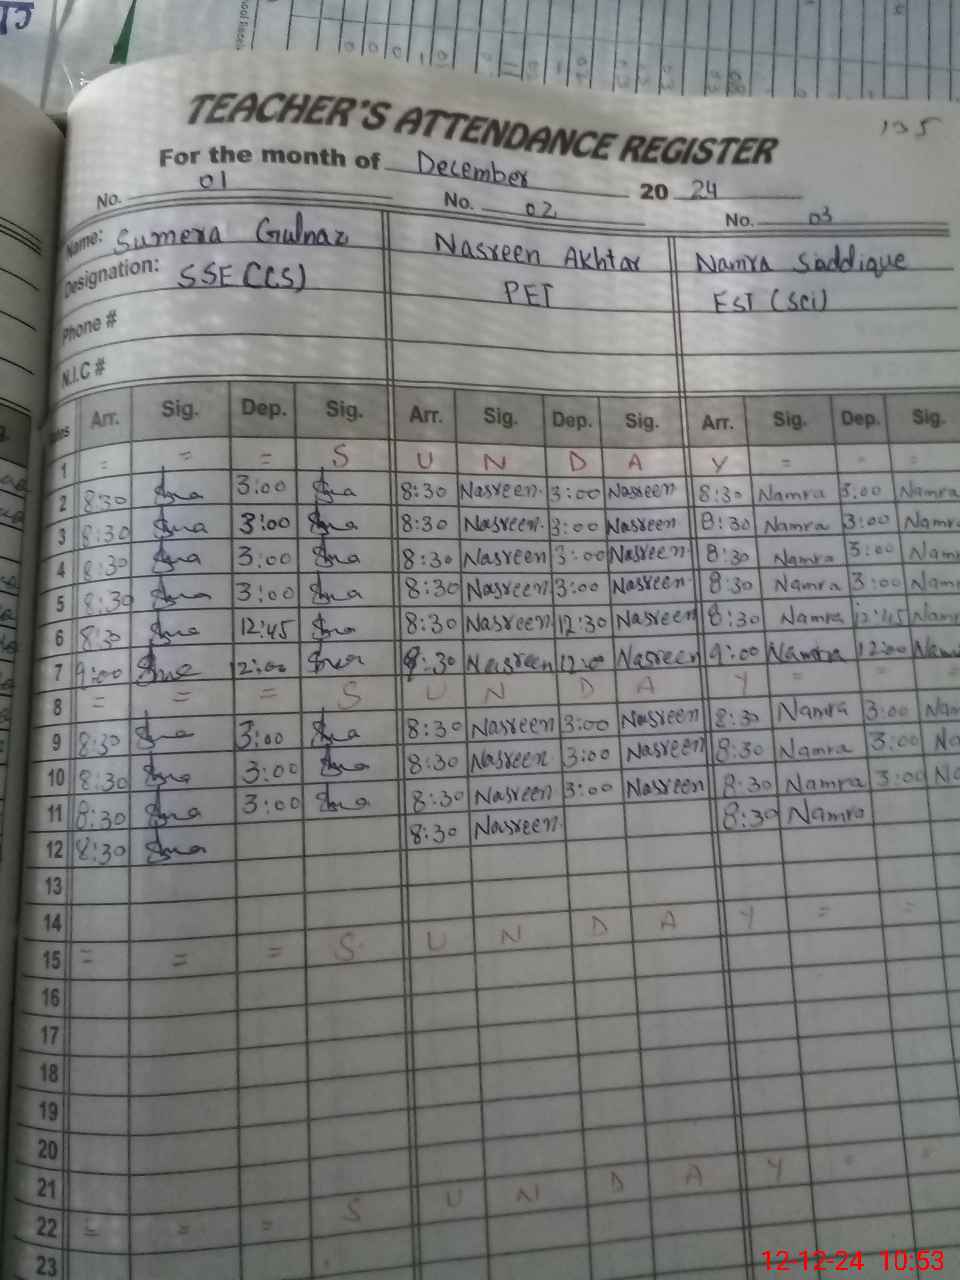 TEACHER'S ATTENDANCE REGISTER
135
For the month of December 20 24
No. 01 No. 02 No. 03
Name: Sumera Gulnaz Nasreen Akhtar Namra Siddique
Designation: SSE (CS) PET EST (Sci)
Phone #
N.I.C #
Arr. Sig. Dep. Sig. Arr. Sig. Dep. Sig. Arr. Sig. Dep. Sig.
1 = = = S U N D A Y = = =
2 8:30 3:00 8:30 Nasreen 3:00 Nasreen 8:30 Namra 3:00 Namra
3 8:30 3:00 8:30 Nasreen 3:00 Nasreen 8:30 Namra 3:00 Namr
4 8:30 3:00 8:30 Nasreen 3:00 Nasreen 8:30 Namra 3:00 Nam
5 8:30 3:00 8:30 Nasreen 3:00 Nasreen 8:30 Namra 3:00 Nam
6 8:30 12:45 8:30 Nasreen 12:30 Nasreen 8:30 Namra 12:45 Nam
7 9:00 12:00 8:30 Nasreen 12:00 Nasreen 9:00 Namra 12:00 Nam
8 = = = S U N D A Y = = =
9 8:30 3:00 8:30 Nasreen 3:00 Nasreen 8:30 Namra 3:00 Nam
10 8:30 3:00 8:30 Nasreen 3:00 Nasreen 8:30 Namra 3:00 Na
11 8:30 3:00 8:30 Nasreen 3:00 Nasreen 8:30 Namra 3:00 Na
12 8:30 8:30 Nasreen 8:30 Namra
13
14
15 = = = S U N D A Y = =
16
17
18
19
20
21
22 = = = S U N D A Y = =
23
12-12-24 10:53